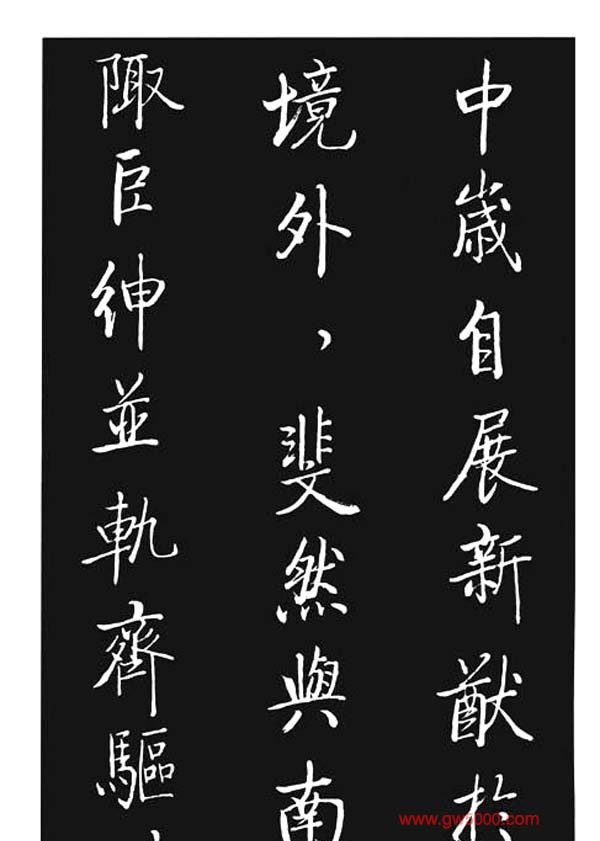 中歲自展新猷於
境外，斐然與南
陬臣紳並軌齊驅
www.gwz000.com